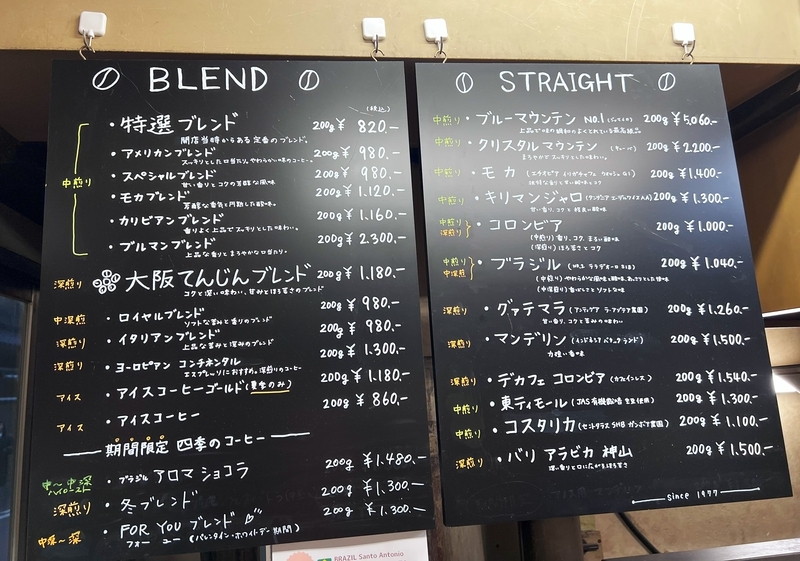 BLEND
(税込)
中煎り
・特選ブレンド 200g ¥ 820.-
開店当時からある定番のブレンド。
・アメリカンブレンド 200g ¥ 980.-
スッキリとした口当たり。やわらかい味のコーヒー。
・スペシャルブレンド 200g ¥ 980.-
甘い香りとコクの芳醇な風味
・モカブレンド 200g ¥ 1.120.-
芳醇な香気と円熟した酸味。
・カリビアンブレンド 200g ¥ 1.160.-
香りよく上品でスッキリとした味わい。
・ブルマンブレンド 200g ¥ 2.300.-
上品な香りとまろやかな口当り。
深煎り 大阪てんじんブレンド 200g ¥ 1.180.-
コクと深い味わい、甘みとほろ苦さのブレンド
中深煎り ・ロイヤルブレンド 200g ¥ 980.-
ソフトな苦みと香りのブレンド
深煎り ・イタリアンブレンド 200g ¥ 980.-
上品な苦みと深みのブレンド
深煎り ・ヨーロピアン コンチネンタル 200g ¥ 1.300.-
エスプレーソにおすすめ。深煎りのコーヒー
アイス ・アイスコーヒーゴールド(夏季のみ) 200g ¥ 1.180.-
アイス ・アイスコーヒー 200g ¥ 860.-
期間限定 四季のコーヒー
中〜中深 ハイロースト ・ブラジル アロマ ショコラ 200g ¥ 1.480.-
深煎り ・冬ブレンド 200g ¥ 1.300.-
中深〜深 ・FOR YOU ブレンド 200g ¥ 1.300.-
フォー ユー (バレンタイン・ホワイトデー期間)
STRAIGHT
中煎り ・ブルーマウンテン NO.1 200g ¥ 5,060.-
上品で味の調和のよくとれている最高級品
中煎り ・クリスタルマウンテン 200g ¥ 2.200.-
まろやかでスッキリとした味わい。
中煎り ・モカ (エチオピア イリガチャフェ ウォッシュ G1) 200g ¥ 1.400.-
独特な香りと甘い酸味とコク
中煎り ・キリマンジャロ 200g ¥ 1.300.-
甘い香り、コクと程良い酸味
中煎り 深煎り ・コロンビア 200g ¥ 1.000.-
(中煎り) 香り、コク、まるい酸味
(深煎り) ほろ苦さとコク
中煎り 中深煎り ・ブラジル 200g ¥ 1.040.-
(中深煎り) 香ばしさとソフトな味
深煎り ・グァテマラ 200g ¥ 1.260.-
甘い香り、コクと苦みの味わい
深煎り ・マンデリン 200g ¥ 1.500.-
力強い香味
深煎り ・デカフェ コロンビア (カフェインレス) 200g ¥ 1.540.-
中煎り ・東ティモール (JAS有機栽培生豆使用) 200g ¥ 1.300.-
中煎り ・コスタリカ 200g ¥ 1.100.-
深煎り ・バリ アラビカ 神山 200g ¥ 1.500.-
深い香りと口に広がるほろ苦さ
since 1977
BRAZIL Santo Antonio